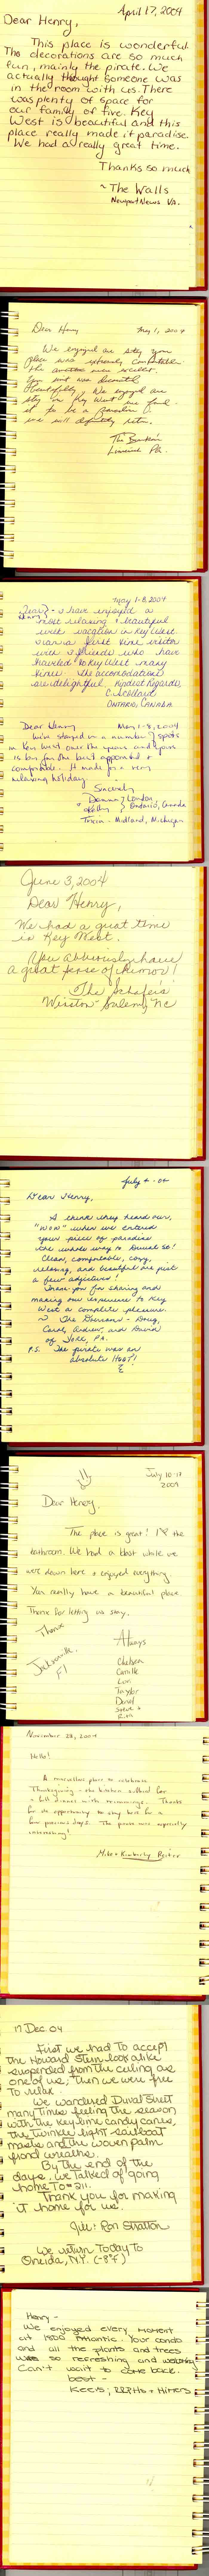 April 17, 2004
Dear Henry,
This place is wonderful.
The decorations are so much
fun, mainly the pirate. We
actually thought someone was
in the room with us. There
was plenty of space for
our family of five. Key
West is beautiful and this
place really made it paradise.
We had a really great time.
Thanks so much
~ The Walls
Newport News Va.
Dear Henry May 1, 2004
We enjoyed our stay your
place was extremely comfortable.
the were excellent.
your unit was decorated
beautifully. We enjoyed our
stay in Key West we found
it to be a Paradise
we will definitely return.
The
PA.
May 1-8, 2004
Dear Henry } I have enjoyed a
most relaxing & beautiful
week vacation in Key West.
I was a first time visitor
with 3 friends who have
traveled to Key West many
times. The accomodations
are delightful. Kindest Regards,
C.
ONTARIO, CANADA
Dear Henry May 1-8, 2004
We've stayed in a number spots
in Key West over the years and yours
is by far the best appointed &
comfortable. It made for a very
relaxing holiday.
Sincerely
Donna } London
Kelly } Ontario, Canada
Tricia - Midland, Michigan
June 3, 2004
Dear Henry,
We had a great time
in Key West.
You obviously have
a great sense of humor!
The Schafers
Winston-Salem, NC
July 4 - 04
Dear Henry,
I think they heard our,
"WOW" when we entered
your piece of paradise
the whole way to Duval St!
Clean, comfortable, cozy,
relaxing, and beautiful are just
a few adjectives!
Thank you for sharing and
making our experience to Key
West a complete pleasure.
~ The - Doug,
Carol, Andrew, and David
of York, PA.
P.S. The pirate was an
absolute HOOT!
July 10-17
2004
Dear Henry,
The place is great! I ♥ the
bathroom. We had a blast while we
were down here & enjoyed everything.
You really have a beautiful place.
Thanx for letting us stay.
Thanx
Always
Jacksonville,
Fl
Chelsea
Camille
Lori
Taylor
David
Steve &
Rita
November 28, 2004
Hello!
A marvellous place to celebrate
Thanksgiving - the kitchen sufficed for
a full dinner with trimmings. Thanks
for the opportunity to stay here for a
few precious days. The pirate were especially
interesting!
Mike & Kimberly Reiter
17 Dec. 04
First we had to accept
the Howard Stern look alike
suspended from the ceiling as
one of us; then we were free
to relax.
We wandered Duval Street
many times feeling the season
with the Key lime candy canes,
the twinkle light sailboat
masts and the woven palm
frond wreaths.
By the end of the
days, we talked of going
home to #311.
Thank you for making
it home for us.
Jill & Ron Stratton
We return today to
Oneida, N.Y. (-8°F)
Henry -
We enjoyed every moment
at 1800 Atlantic. Your condo
and all the plants and trees
was so refreshing and welcoming
Can't wait to come back.
best -